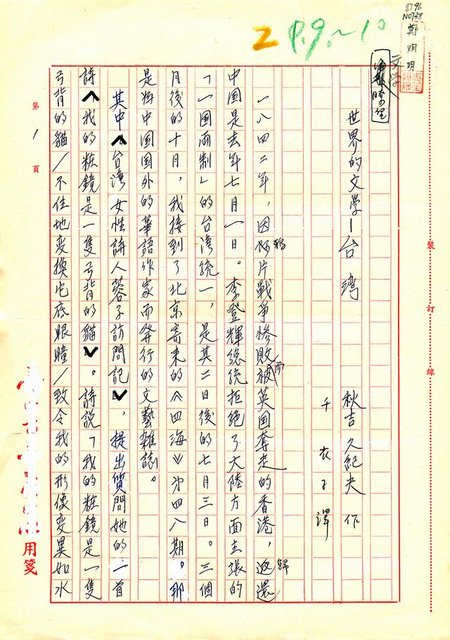 2 P.9.~10
鄭炯明
文学
世界的文學—台灣
秋吉久紀夫 作
千衣子 譯
一八四二年,因鴉片戰爭慘敗而被英国奪走的香港,返還歸
中国是去年七月一日。李登輝總統拒絕了大陸方面主張的
「一国両制」的台湾統一,是其二日後的七月三日。三個
月後的十月,我接到了北京寄来的《四海》第四八期。那
是街中国国外的華語作家而発行的文藝雜誌。
其中〈台湾女性詩人蓉子訪問記〉,提出質問她的一首
詩〈我的粧鏡是一隻弓背的貓〉。詩說「我的粧鏡是一隻
弓背的貓/不住地変換它底眼瞳/致令我的形像変異如水
第1頁
裝訂線
用箋